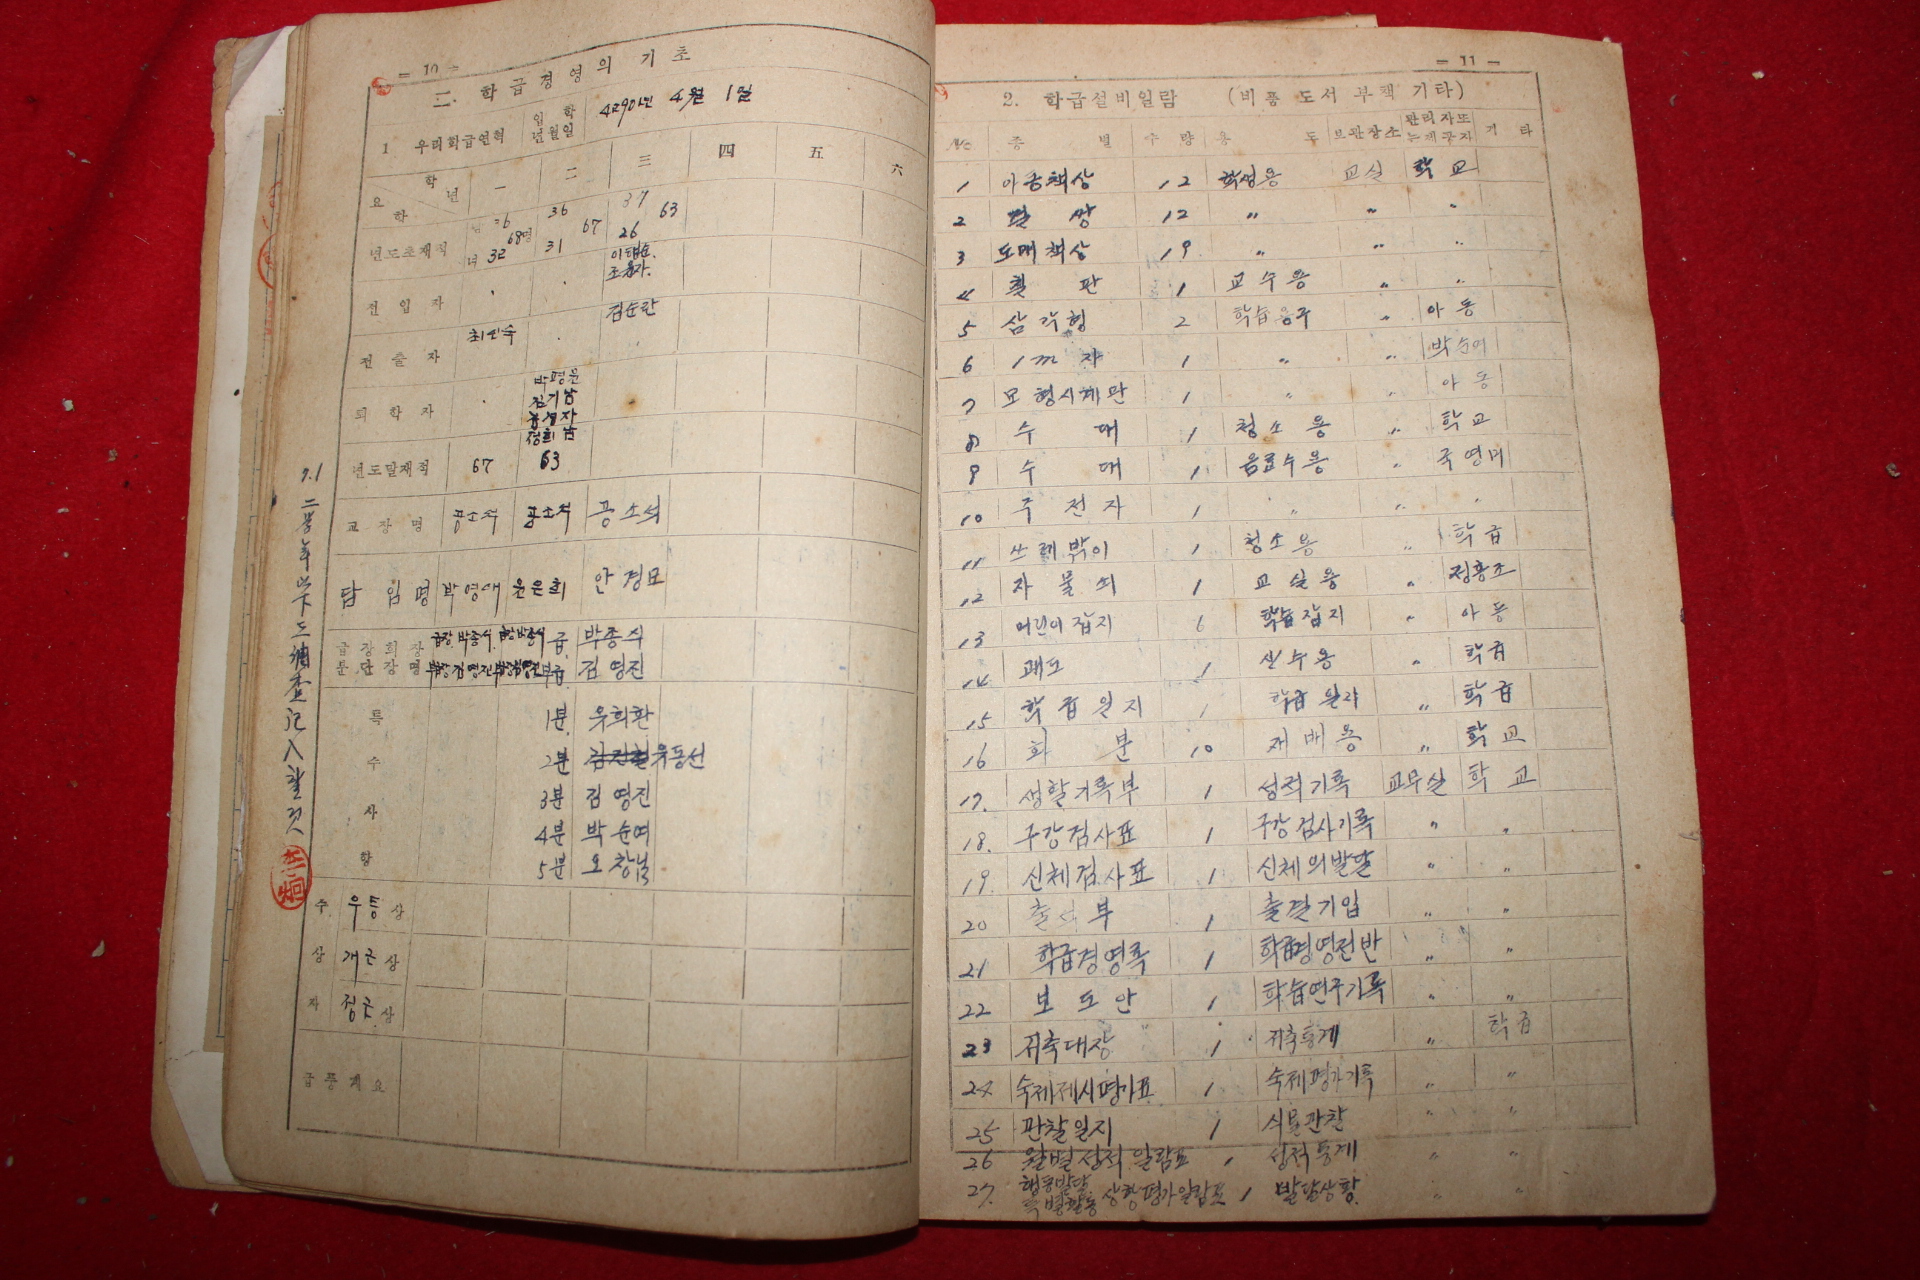 = 10 =
二. 학급경영의 기초
1 우리학급연혁 입학년월일 4290년 4월 1일
학년 一 二 三 四 五 六
요 학
년도초재적 36 68명 36 67 37 63
녀 32 31 26
전입자 . . 이태순. 조용자.
전출자 최인숙 . 김순란
퇴학자 . 박평운
김기남
정희남
년도말재적 67 63
교장명 공소석 공소석 공소석
담임명 박영애 윤은희 안경모
급장회장 급장 박종식 급 박종식
분단장명 부급장 김영진 부급 김영진
특 1분 우희환
수 2분 유동선
사 3분 김영진
4분 박순여
항 5분 오창남
수 우등상
상 개근상
자 정근상
급풍개요
7.1 二学年以下도 調查記入할것
= 11 =
2. 학급설비일람 (비품 도서 부책 기타)
No 종별 수량 용도 보관장소 관리자또는제공자 기타
1 아동책상 12 학생용 교실 학교
2 걸상 12 〃 〃 〃
3 도매책상 19 〃 〃 〃
4 칠판 1 교수용 〃 〃
5 삼각형 2 학습용구 〃 아동
6 1m자 1 〃 〃 박순여
7 모형시계판 1 〃 〃 아동
8 수대 1 청소용 〃 학교
9 수대 1 음료수용 〃 국영미
10 주전자 1 〃 〃 〃
11 쓰레밖이 1 청소용 〃 학급
12 자물쇠 1 교실용 〃 정흥조
13 어린이잡지 6 학습잡지 〃 아동
14 괘도 1 〃 학급
15 학급일지 1 학급일지 〃 학급
16 화분 10 재배용 〃 학교
17. 생활기록부 1 성적기록 교무실 학교
18. 구강검사표 1 구강검사기록 〃 〃
19. 신체검사표 1 신체의발달 〃 〃
20 출석부 1 출결기입 〃 〃
21 학급경영록 1 학급경영전반 〃 〃
22 보도안 1 학습연구기록 〃 〃
23 저축대장 1 저축통계 〃 학급
24 숙제제시평가표 1 숙제평가기록 〃 〃
25 관찰일지 1 식물관찰 〃 〃
26 월별성적일람표 1 성적통계 〃 〃
27. 행동발달 특별활동 상황평가일람표 1 발달상황. 〃 〃